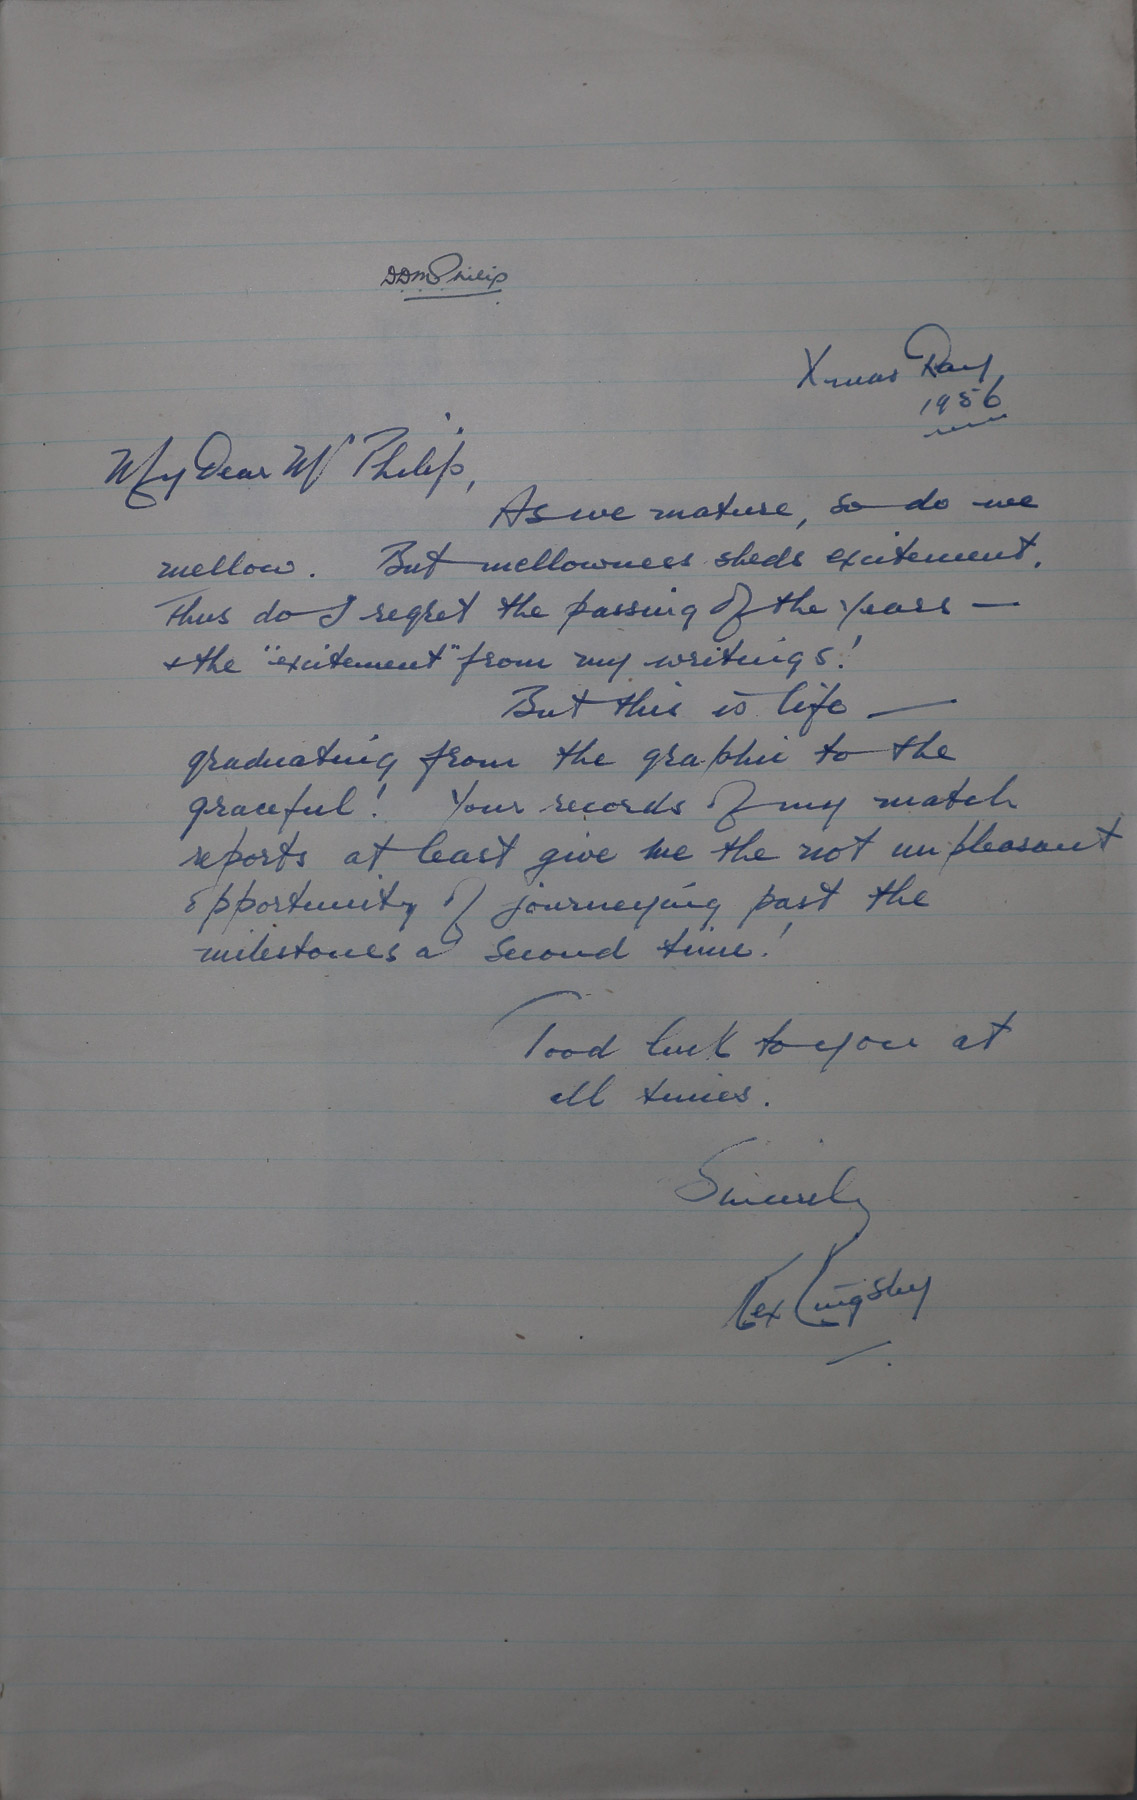 D.D.M. Philip
Xmas Day
1956
My Dear Mr Philip,
As we mature, so do we
mellow. But mellowness sheds excitement.
Thus do I regret the passing of the years —
& the "excitement" from my writings!
But this is life —
graduating from the graphic to the
graceful! Your records of my match
reports at least give me the not unpleasant
opportunity of journeying past the
milestones a second time!
Good luck to you at
all times.
Sincerely
Rex Kingsley